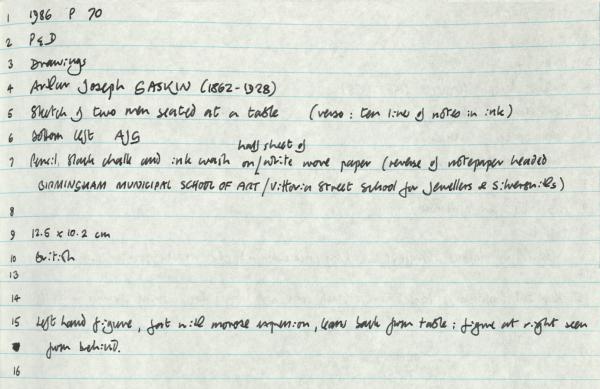 1 1986 P 70
2 P&D
3 Drawings
4 Arthur Joseph GASKIN (1862-1928)
5 Sketch of two men seated at a table (verso: ten lines of notes in ink)
6 bottom left AJG
half sheet of
7 Pencil, black chalk and ink wash on/white wove paper (reverse of notepaper headed
BIRMINGHAM MUNICIPAL SCHOOL OF ART/Vittoria Street School for Jewellers & Silversmiths)
8
9 12.5 x 10.2 cm
10 British
13
14
15 Left hand figure, with morose expression, leans back from table; figure at right seen
from behind.
16